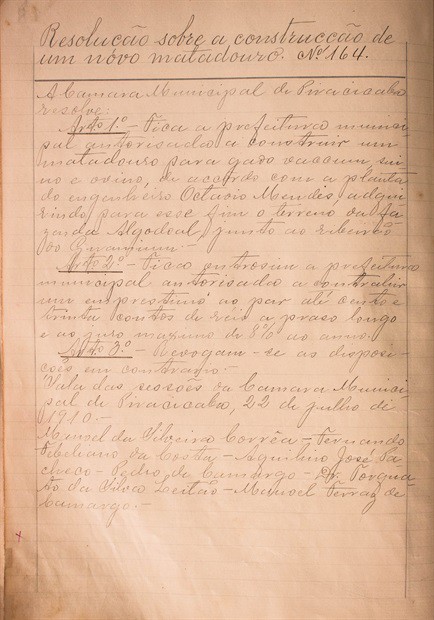 Resolução sobre a construcção de
um novo matadouro. Nº 164.
A Camara Municipal de Piracicaba
resolve:
Artº 1º - Fica a prefeitura munici
pal autorisada a construir um
matadouro para gado vaccum, sui
no e ovino, de accordo com a planta
do engenheiro Octavio Mendes, adqui
rindo para esse fim o terreno da fa
zenda Algodoal, junto ao ribeirão
do Guamium.-
Artº 2º - Fica outrosim a prefeitura
municipal autorisada a contrahir
um emprestimo ao par até cento e
trinta contos de reis a praso longo
e ao juro maximo de 8% ao anno.
Artº 3º - Revogam-se as disposi-
ções em contrario.-
Sala das sessões da Camara Munici
pal de Piracicaba, 22 de julho de
1910.-
Manoel da Silveira Corrêa - Fernando
Febeliano da Costa - Aquilino José Pa-
checo - Pedro de Camargo - Dr. Torqua-
to da Silva Leitão - Manoel Ferraz de
Camargo.-